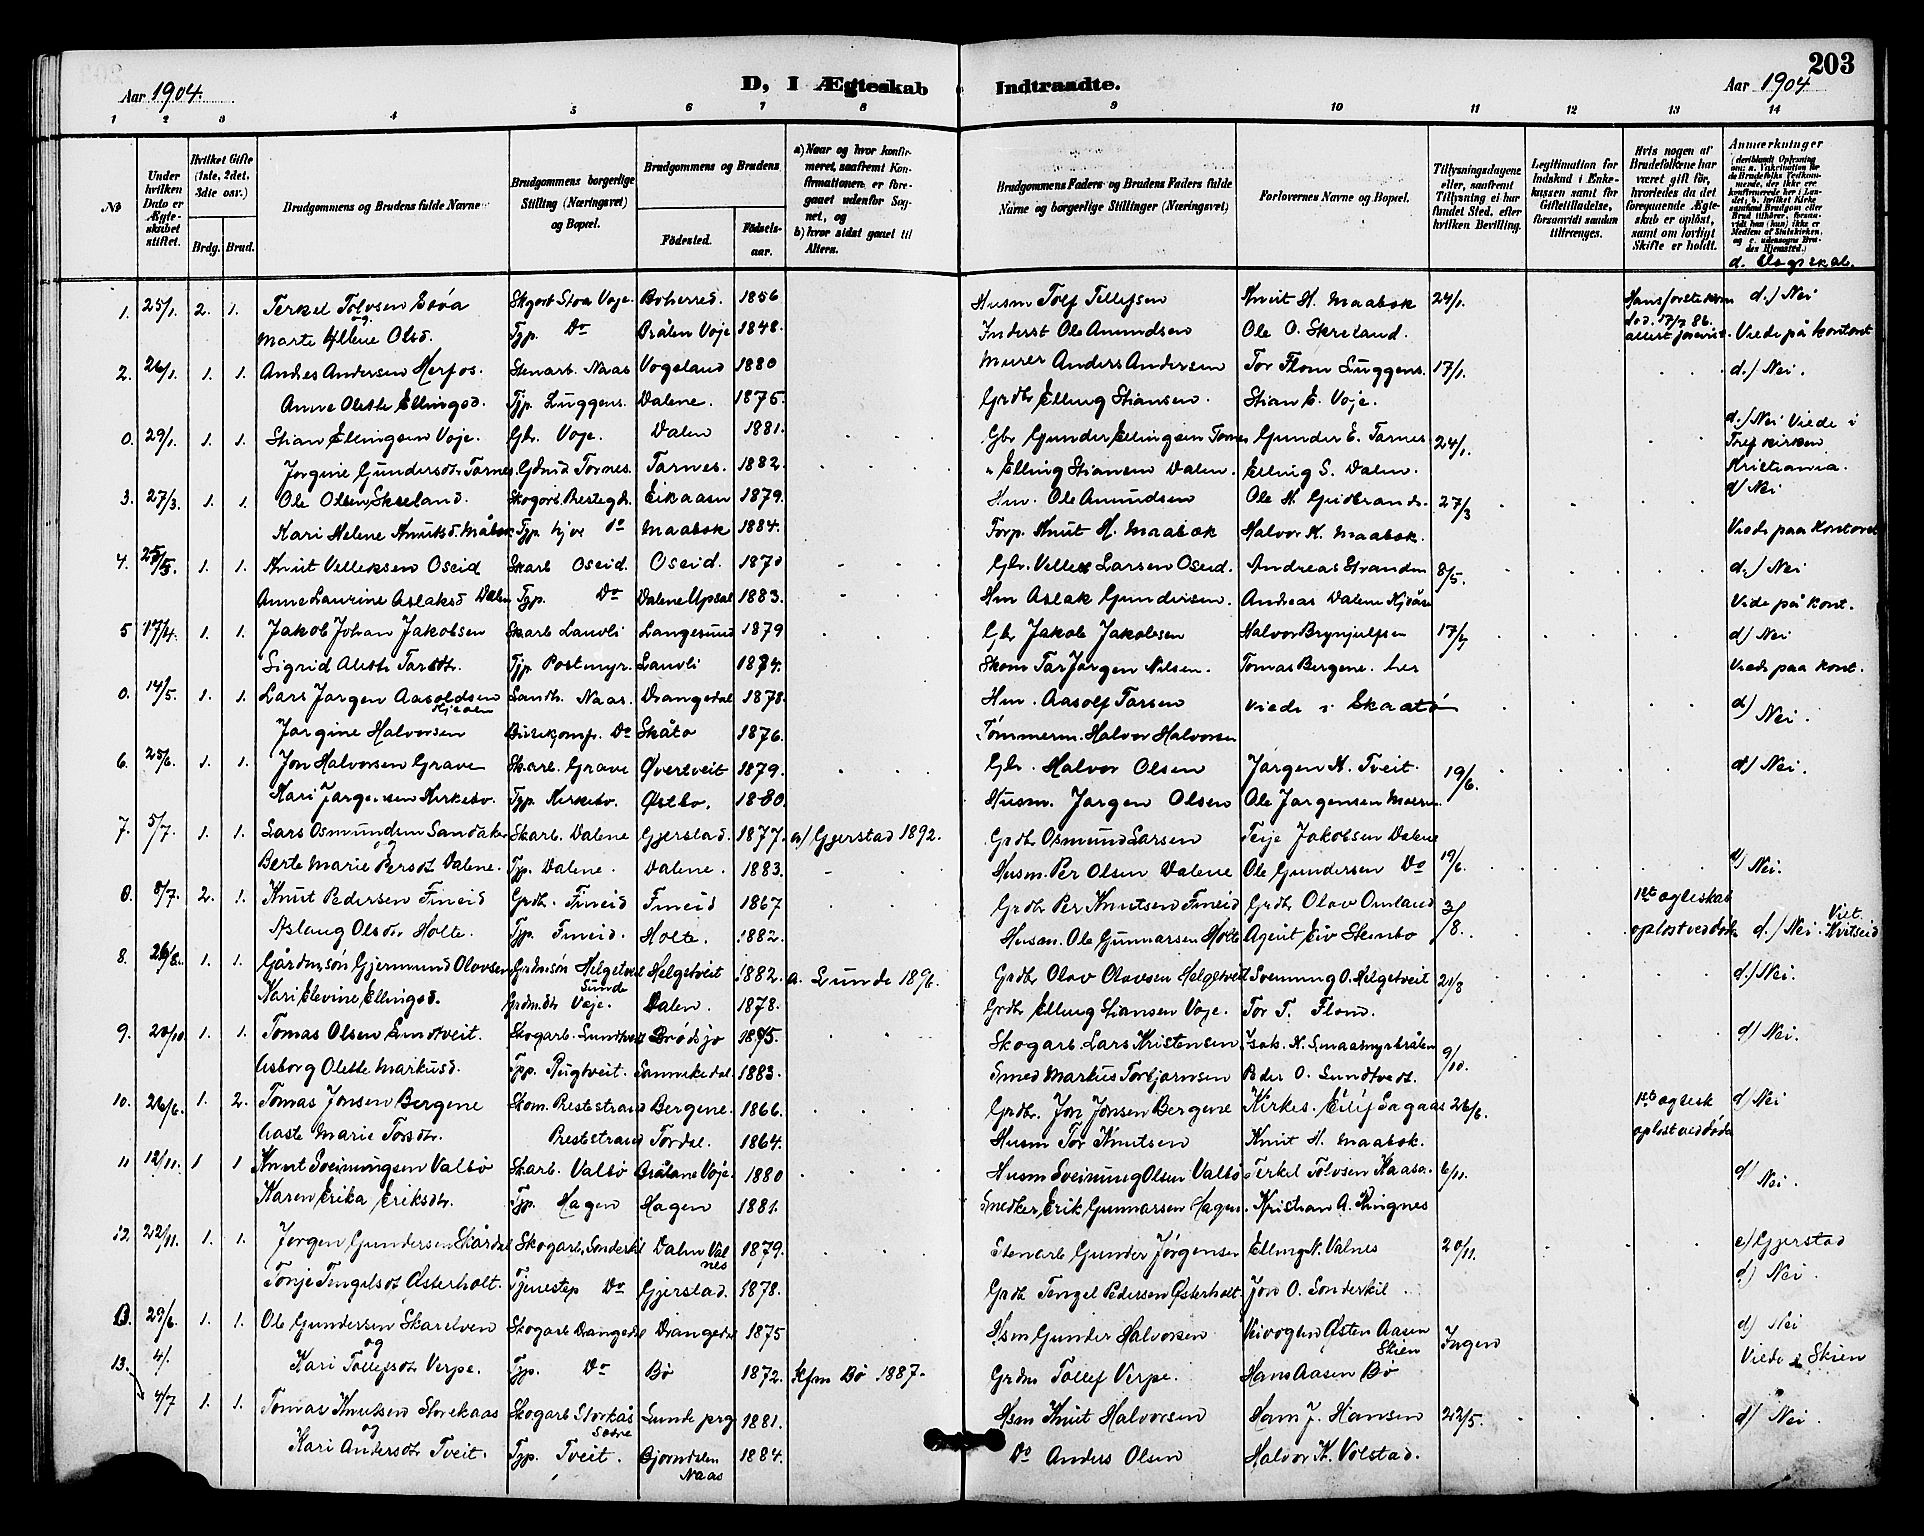 203
Aar 1904.
D, I Ægteskab
Indtraadte.
Aar 1904
1 2 3 4 5 6 7 8 9 10 11 12 13 14
№
Under hvilken Dato er Ægteskabet stiftet.
Hvilket Gifte (1ste, 2det, 3die osv.)
Brdg. Brud.
Brudgommens og Brudens fulde Navne
Brudgommens borgerlige Stilling (Næringsvei) og Bopæl.
Brudgommens og Brudens
Fødested. Fødsels-aar.
a) Naar og hvor konfirmeret, saafremt Konfirmationen er foregaaet udenfor Sognet, og
b) hvor sidst gaaet til Alters.
Brudgommens Faders og Brudens Faders fulde Navne og borgerlige Stillinger (Næringsvei)
Forlovernes Navne og Bopæl.
Tillysningsdagene eller, saafremt Tillysning ei har fundet Sted, efter hvilken Bevilling.
Legitimation for Indskud i Enkekassen samt for Giftetilladelse, forsaavidt saadan tiltrænges.
Hvis nogen af Brudefolkene har været gift før, hvorledes da det foregaaende Ægteskab er opløst, samt om lovligt Skifte er holdt.
Anmærkninger
1. 25/1. 2. 1. Terkel Tolvsen Stoa Skgarb Stoa Voje. Boherred. 1856 Husm Tolf Tellefsen Knut H. Maabøk 24/1. d.) Nei
og
Marte Hellene Olsd. Typ. Do Bråten Voje 1848. Inderst Ole Amundsen Ole O. Skreland. Viede på kontoret
2. 26/1. 1. 1. Andres Andersen Herfos. Stenarb. Naas Vogeland 1880 Murer Anders Andersen Tor Flom Luggens. 17/1. d.) Nei.
Anne Olette Ellingsd. Tjp. Luggens. Dalene. 1875. Grdbr Elling Stiansen. Stian E. Voje.
0. 29/1. 1. 1. Stian Ellingsen Voje. Gbr. Voje. Dalen 1881. Gbr Gunder Ellingsen Tornes Gunder E. Tarnes 24/1. d./ Nei Viede i
Jørgine Gundersdtr Tarnes. Tarnes. 1882. " Elling Stiansen Dalen. Elling S. Dalen. Kristiania.
3. 27/3. 1. 1. Ole Olsen Skreland. Skogarb Prestegd. Eikaasen 1879. Hm. Ole Amundsen Ole H. Gudbrands. 27/3 d) Nei
Kari Helene Knutsd. Måbøk Typ. hjve do Maabøk 1884. Forp. Knut H. Maabøk Halvor K. Maabøk. Viede paa kontoret
4. 25/5. 1. 1. Knut Velleksen Oseid Skarb Oseid. Oseid. 1870 Gbr. Vellek Larsen Oseid. Andreas Stranden 8/5. d.) Nei
Anne Laurine Aslaksd Dalen Typ. Do Dalene Upsal 1883. Hm Aslak Gundersen. Andreas Dalene Kjøåse Viede på kont.
5 17/4. 1. 1. Jakob Johan Jakobsen Skarb Lauvli Langesund 1879 Gbr Jakob Jakobsen Halvor Brynjulfsen 17/4 d) Nei
Sigrid Alette Tarsdtr. Tjp. Postmyr. Lauvli 1874. Skom Tar Jørgen Nilsen. Tomas Bergene. her Viede paa kont.
0. 14/5. 1. 1. Lars Jørgen Aasoldsen Landh. Naas. Drangedal 1878. Hm. Aasolf Tarsen viede i Skaatø d) Nei.
Jørgine Halvorsen Do Skåtø 1876. Tømmerm. Halvor Halvorsen
6. 25/6. 1. 1. Jon Halvorsen Grave Skarb. Grave Øvertveit 1879. Gbr. Halvor Olsen Jørgen H. Tveit. 19/6. d) Nei.
Kari Jørgensen Kirkebø. Typ. Kirkebø. Østbø. 1880. Husm. Jørgen Olsen Ole Jørgensen Moen.
7. 5/7. 1. 1. Lars Osmundsen Sandaker Skarb. Dalene Gjerstad. 1877. a) Gjerstad 1892. Grdbr Osmund Larsen Terje Jakobsen Dalene
og
Berte Marie Persdt Dalene. Typ. Dalene. Dalene. 1883. Husm. Per Olsen Dalene Ole Gundersen Do 19/6. d) Nei.
0. 8/7. 2. 1. Knut Pedersen Fineid Grdbr. Fineid Fineid 1867 Grdbr Per Knutsen Fineid Grdbr Olav Omland 3/8. 1ste ægteskab
Aslaug Olsdtr Holte. Typ. Fineid. Holte. 1882. Husm. Ole Gunnarsen Holte Agent Eiv Stenbo opløst ved død d.) Nei. Viet Kvitseid
8. 26/8. 1. 1. Gårdmsøn Gjermund Olovsen Grdmsøn Helgetveit Helgetveit 1882. a. Lunde 1896. Grdbr Olav Olavsen Helgetveit Sveinung O. Helgetveit 21/8 d.) Nei.
Kari Elevine Ellingsd. Grdm.dtr Voje. Dalen. 1878. Grdbr Elling Stiansen Voje. Tor T. Flom.
9. 20/10. 1. 1. Tomas Olsen Lundtveit. Skogarb. Lundtveit Brødsjø 1875. Skogarb Lars Kristensen. Isak. K. Smaamyrbråten 9/10. d) Nei.
Asborg Olette Markusd. Typ. Rugtveit. Sannikedal. 1883. Smed Markus Torbjørnsen Peder O. Lundtvedt.
10. 26/6. 1. 2. Tomas Jonsen Bergene Skom. Prestestrand Bergene. 1866. Grdbr. Jon Jonsen Bergene Kirkes. Eilif Sagaas 26/6. 1ste ægtesk d) Nei
Aaste Marie Torsdtr. Prestestrand Tordal. 1864. Husm Tor Knutsen Knut H. Maabøk. opløst ved døden
11 12/11. 1 1 Knut Sveinungsen Valbø Skarb. Valbø Bråtane Voje. 1880 Husm Sveinung Olsen Valbø Terkel Tolvsen Kaasa. 6/11. d) Nei.
Karen Erika Eriksdtr. Typ. Hagen Hagen 1881. Snedker Erik Gunnarsen Hagen. Kristian A. Ringnes
12. 22/11. 1. 1. Jørgen Gundersen Skårdal Skogarb. Sønderkil Dalen Valnes 1879. Stenarb Gunder Jørgensen Elling N. Valnes 20/11. c) Gjerstad
Tonje Tengelsdt Østerholt. Tjenestep Do Gjerstad. 1878. Grdbr Tengel Pedersen Østerholt. Jon O. Sønderkil. d) Nei.
29/6. 1. 1. Ole Gundersen Skarelven Skogarb Drangedal Drangedal 1875 Hsm Gunder Halvorsen Veivogter Østen Aasen Skien Ingen d) Nei
og
13. 4/. Kari Tollefsdt Verpe. Typ. Do Bø 1872. Kfm Bø 1887. Grdm Tollef Verpe. Hans Aasen Bø Viede i Skien
4/7 1. 1. Tomas Knutsen Storekaas Skogarb Storkås Lunde prg 1881. Hsm Knut Halvorsen Ham J. Hansen 22/5. d) Nei.
og
Kari Andersdtr Tveit. Typ. Tveit. Bjørndalen Naas 1884. Do Anders Olsen Halvor K. Volstad.